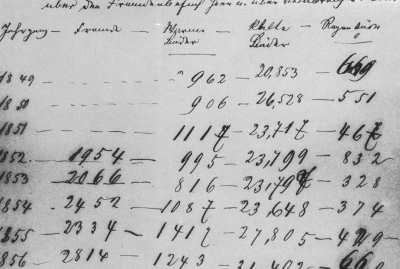 über den Fremdenbesuch
Jahrgang — Fremde — Warme Bäder — Kalte Bäder — Regenbäder
1849 — 962 — 20,853 — 669
1850 — 906 — 26,528 — 551
1851 — 1117 — 23,717 — 467
1852. — 1954 — 995 — 23,799 — 832
1853 — 2066 — 816 — 23,797 — 328
1854 — 2452 — 1087 — 23,648 — 374
1855 — 2334 — 1412 — 27,805 — 429
1856 — 2814 — 1243